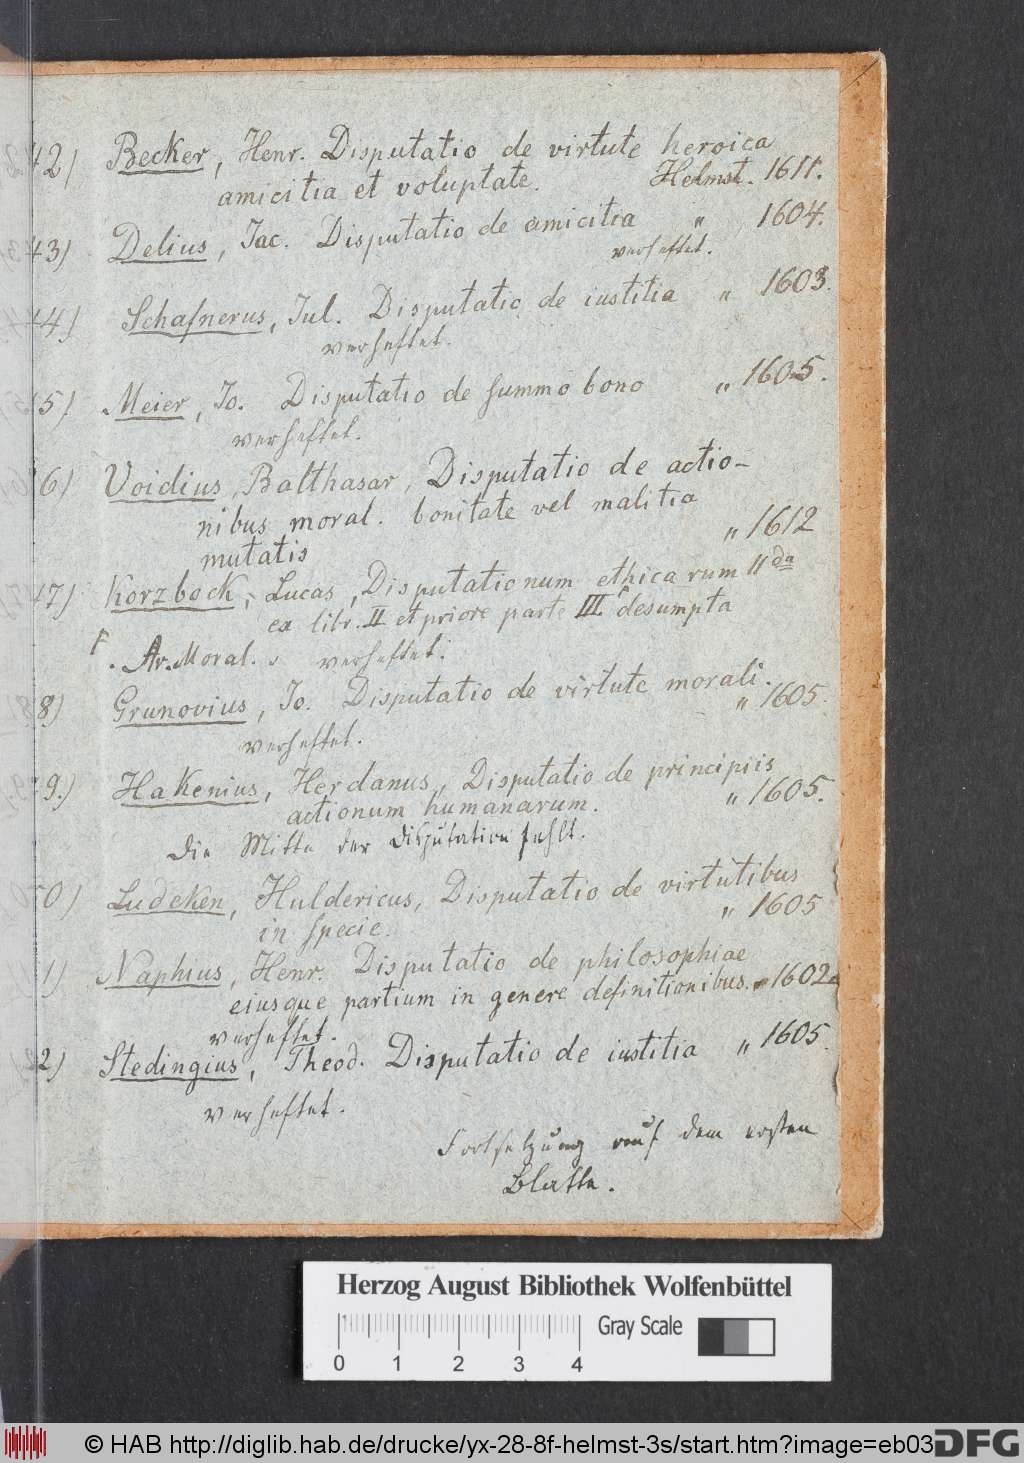 42) Becker, Henr. Disputatio de virtute heroica
amicitia et voluptate. Helmst. 1611.
43) Delius, Jac. Disputatio de amicitia " 1604.
verheftet.
44) Schafnerus, Jul. Disputatio de iustitia " 1603.
verheftet.
5) Meier, Jo. Disputatio de summo bono " 1605.
verheftet.
6) Voidius, Balthasar, Disputatio de actio-
nibus moral. bonitate vel malitia
mutatis " 1612
47) Korzbock, Lucas, Disputationum ethicarum 11da
ex libr. II et priore parte III desumpta
Ar. Moral. verheftet.
8) Grunovius, Jo. Disputatio de virtute morali.
" 1605.
verheftet.
9.) Hakenius, Herdanus, Disputatio de principiis
actionum humanarum. " 1605.
Die Mitte der Disputation fehlt.
50) Ludeken, Huldericus, Disputatio de virtutibus
in specie. " 1605
1) Naphius, Henr. Disputatio de philosophiae
eiusque partium in genere definitionibus. " 1602
verheftet.
2) Stedingius, Theod. Disputatio de iustitia " 1605.
verheftet.
Fortsetzung auf dem ersten
Blatte.
Herzog August Bibliothek Wolfenbüttel
Gray Scale
0 1 2 3 4
© HAB http://diglib.hab.de/drucke/yx-28-8f-helmst-3s/start.htm?image=eb03
DFG